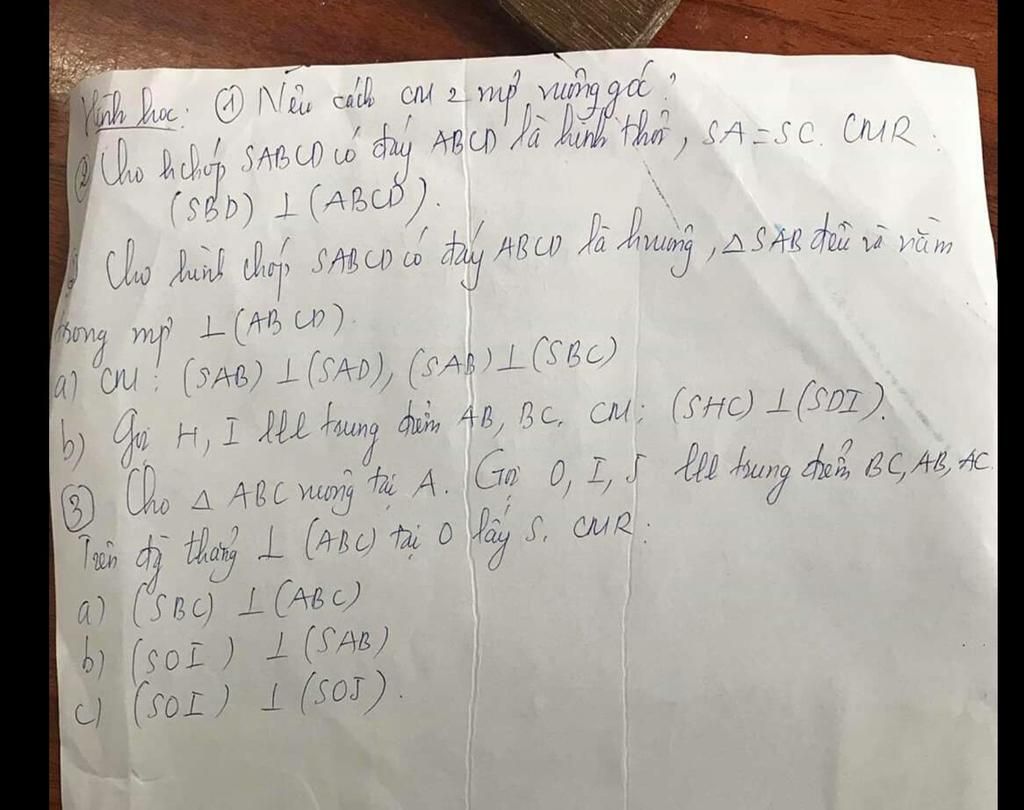 Hình học: ① Nêu cách CM 2 mp vuông góc?
② Cho h chóp SABCD có đáy ABCD là hình thoi, SA = SC. CMR:
(SBD) ⊥ (ABCD).
Cho hình chóp SABCD có đáy ABCD là hvuông, △ SAB đều và nằm
trong mp ⊥ (ABCD).
a) CM: (SAB) ⊥ (SAD), (SAB) ⊥ (SBC)
b) Gọi H, I lll trung điểm AB, BC. CM: (SHC) ⊥ (SDI).
③ Cho △ ABC vuông tại A. Gọi O, I, J lll trung điểm BC, AB, AC.
Trên đg thẳng ⊥ (ABC) tại O lấy S. CMR:
a) (SBC) ⊥ (ABC)
b) (SOI) ⊥ (SAB)
c) (SOI) ⊥ (SOJ).